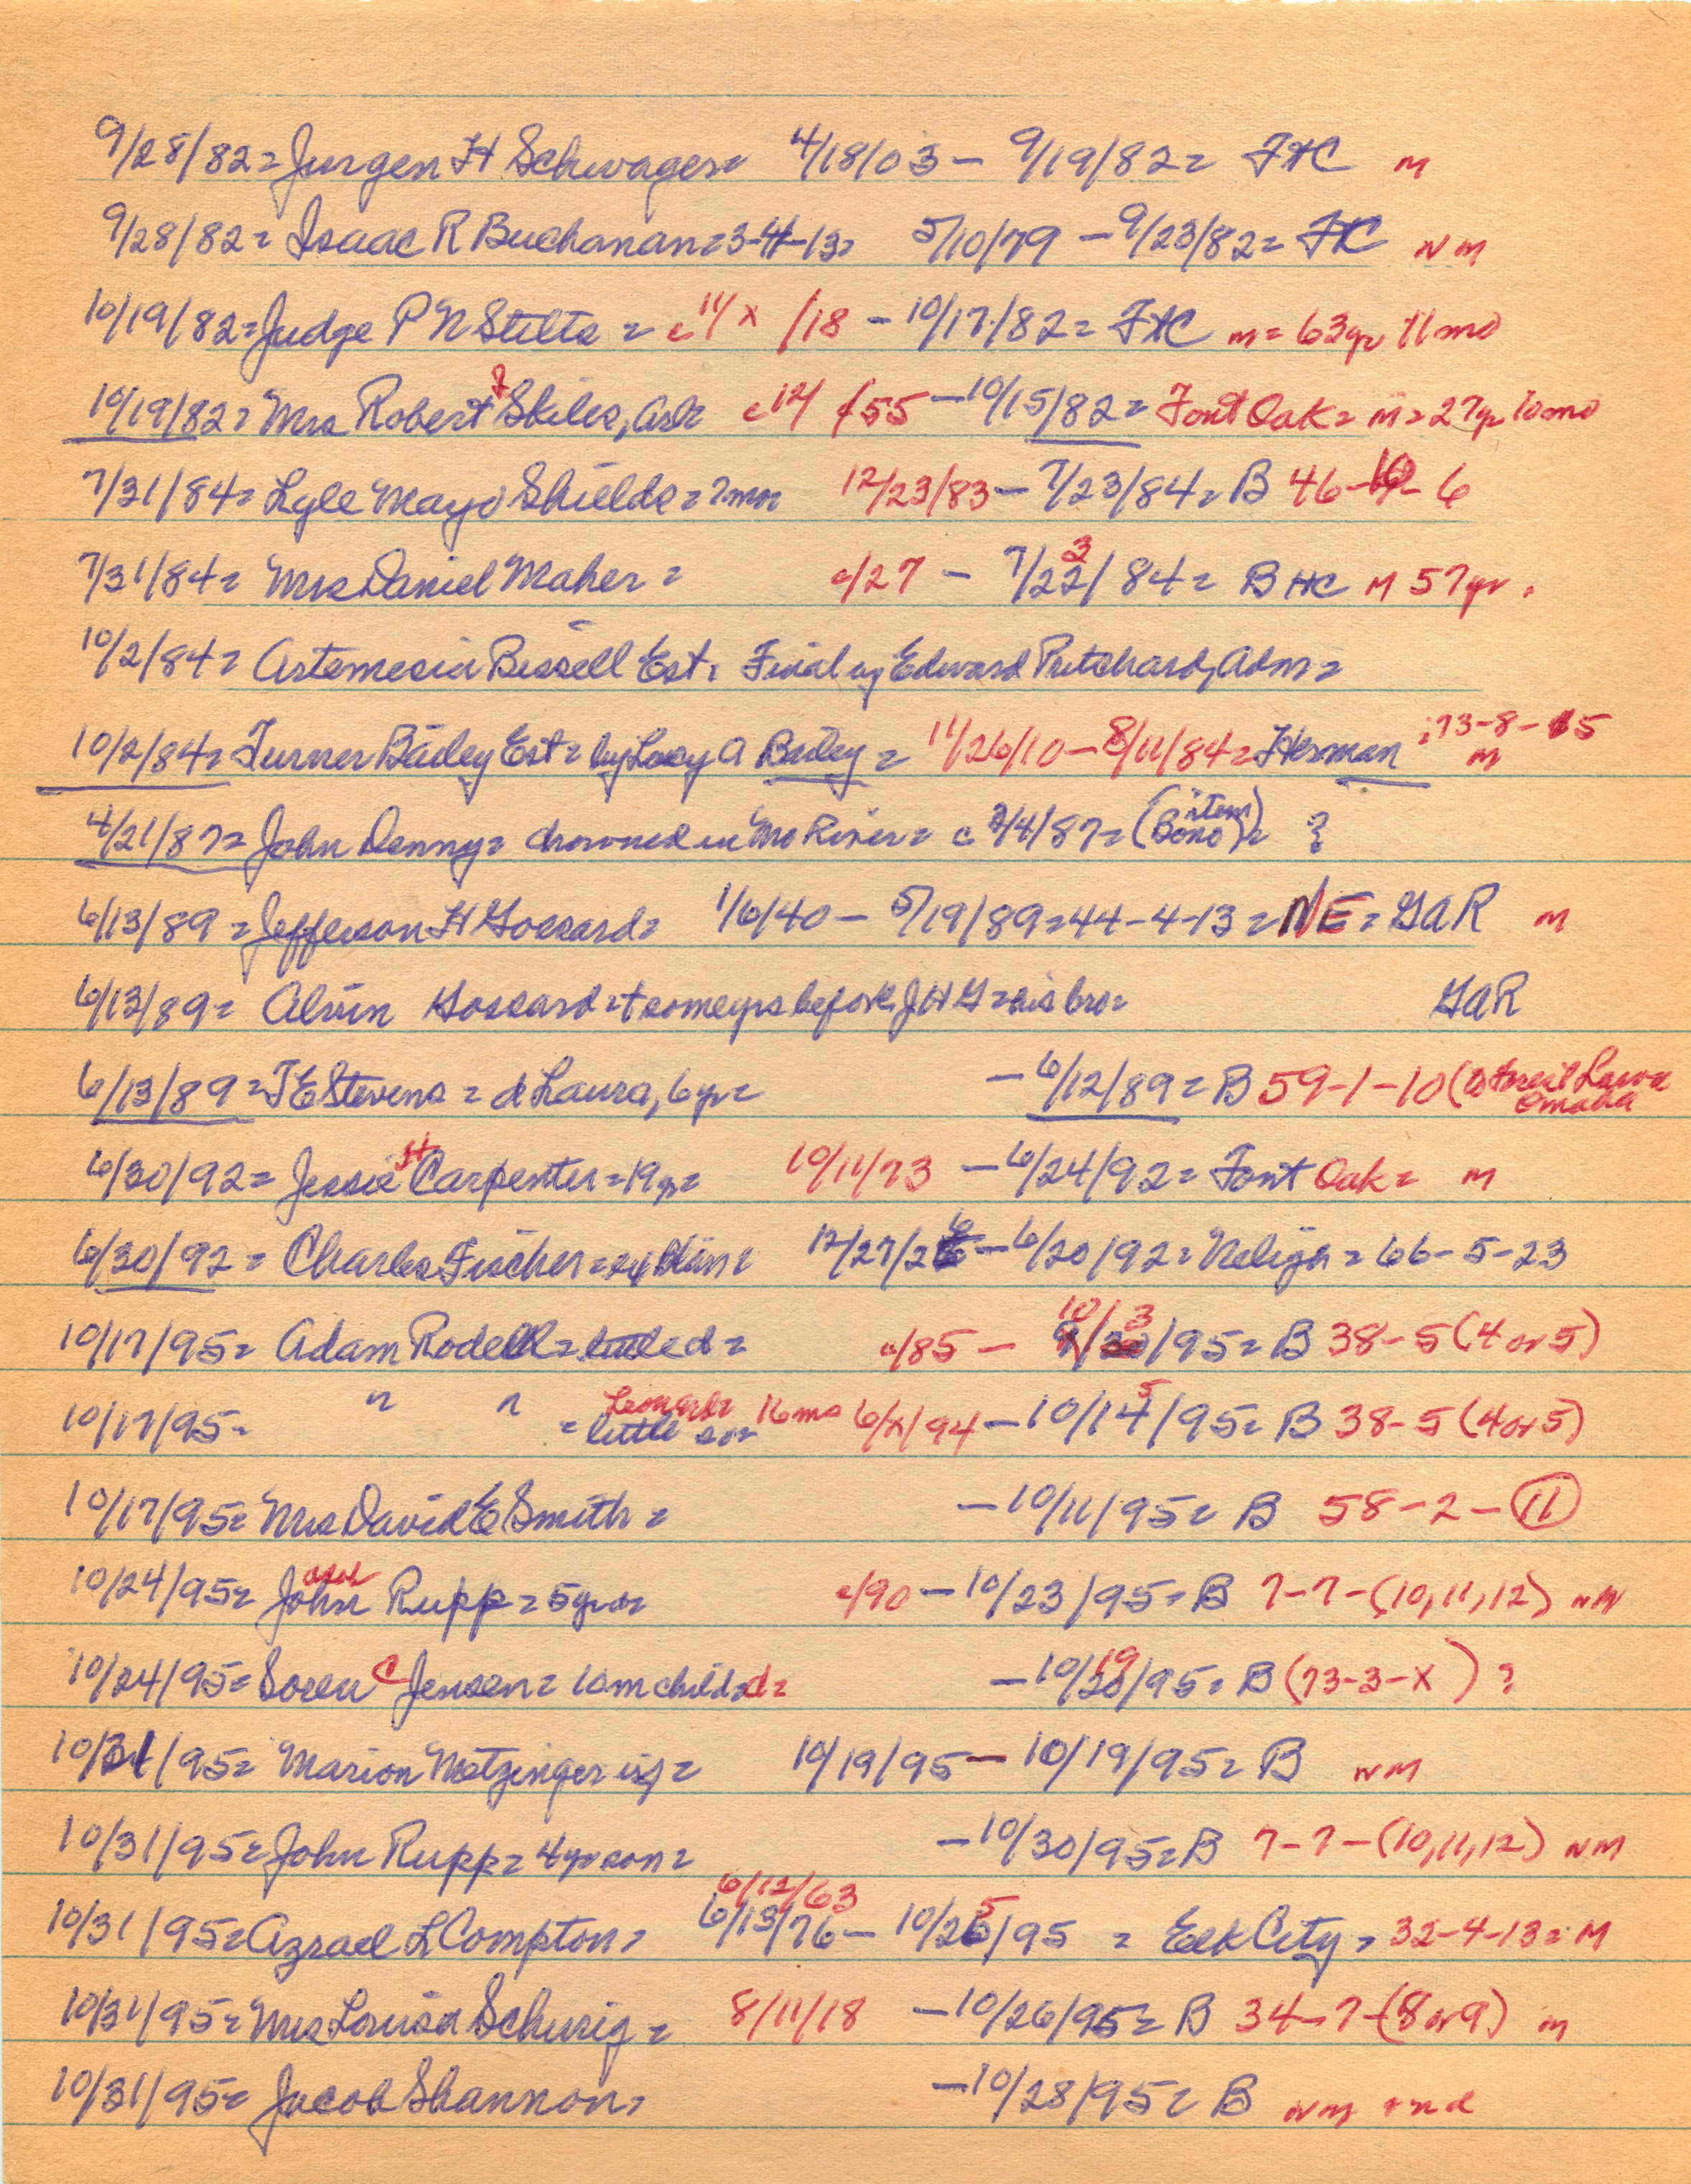 9/28/82= Jurgen H Schwager= 4/18/03 – 9/19/82= FtC m
9/28/82= Isaac R Buchanan=3-4-13= 5/10/79 – 9/23/82= FtC NM
10/19/82= Judge P N Stilts = c 11/x /18 – 10/17/82= FtC m= 63yr 11mo
10/19/82= Mrs Robert J Skiles, Ark c 12/ /55 – 10/15/82= Font Oak= m= 27yr 10mo
7/31/84= Lyle Mayo Shields= 7mo= 12/23/83 – 7/23/84= B 46-10-6
7/31/84= Mrs Daniel Maher = c/27 – 7/23/84= B HC M 57yr.
10/2/84= Artemesia Bissell Est= Final by Edward Pritchard, Adm=
10/2/84= Turner Bailey Est= by Lucy A Bailey = 11/26/10 – 8/11/84= Herman ;73-8-15 m
4/21/87= John Denny= drowned in Mo River= c 3/4/87= (Bono item)= ?
6/13/89= Jefferson H Gossard= 1/6/40 – 5/19/89=44-4-13= NE= GAR m
6/13/89= Alvin Gossard=+ some yrs before JHG= his bro= GAR
6/13/89= J E Stevens = d Laura, 6yr= – 6/12/89= B 59-1-10 ( Lawn Omaha
6/30/92= Jessie H Carpenter=19yr= 10/11/73 – 6/24/92= Font Oak= m
6/30/92= Charles Fischer= ex Blair= 12/27/26 – 6/20/92= Neligh= 66-5-23
10/17/95= Adam Rodell= little d= c/85 – 10/3/95= B 38-5 (4 or 5)
10/17/95= " " = little son Leonard= 16mo 6/x/94 – 10/15/95= B 38-5 (4 or 5)
10/17/95= Mrs David E Smith= – 10/11/95= B 58-2-11
10/24/95= John Rupp= 5yr d= c/90 – 10/23/95= B 7-7-(10,11,12) NM
10/24/95= Soren C Jensen= 10m child= d= – 10/19/95= B (73-3-X) ?
10/31/95= Marion Metzinger inf= 10/19/95 – 10/19/95= B NM
10/31/95= John Rupp= 4yr son= – 10/30/95= B 7-7-(10,11,12) NM
6/12/63
10/31/95= Azrael L Compton= 6/13/76 – 10/25/95 = Elk City= 32-4-13= M
10/31/95= Mrs Louisa Schurig= 8/11/18 – 10/26/95= B 34-7-(8 or 9) m
10/31/95= Jacob Shannon= – 10/28/95= B NM